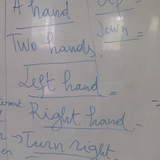 A hand
Up
Two hands
down
Left hand =
Right hand -
→ Turn right